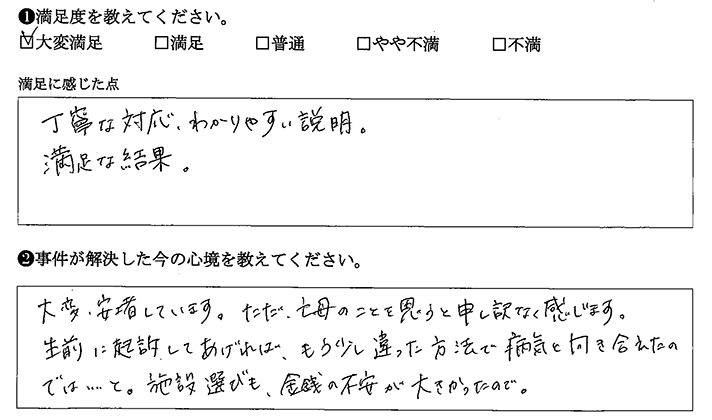 ❶満足度を教えてください。
☑大変満足 □満足 □普通 □やや不満 □不満
満足に感じた点
丁寧な対応、わかりやすい説明。
満足な結果。
❷事件が解決した今の心境を教えてください。
大変、安堵しています。ただ、亡母のことを思うと申し訳なく感じます。
生前に起訴してあげれば、もう少し違った方法で病気と向き合えたの
では……と。施設選びも、金銭の不安が大きかったので。